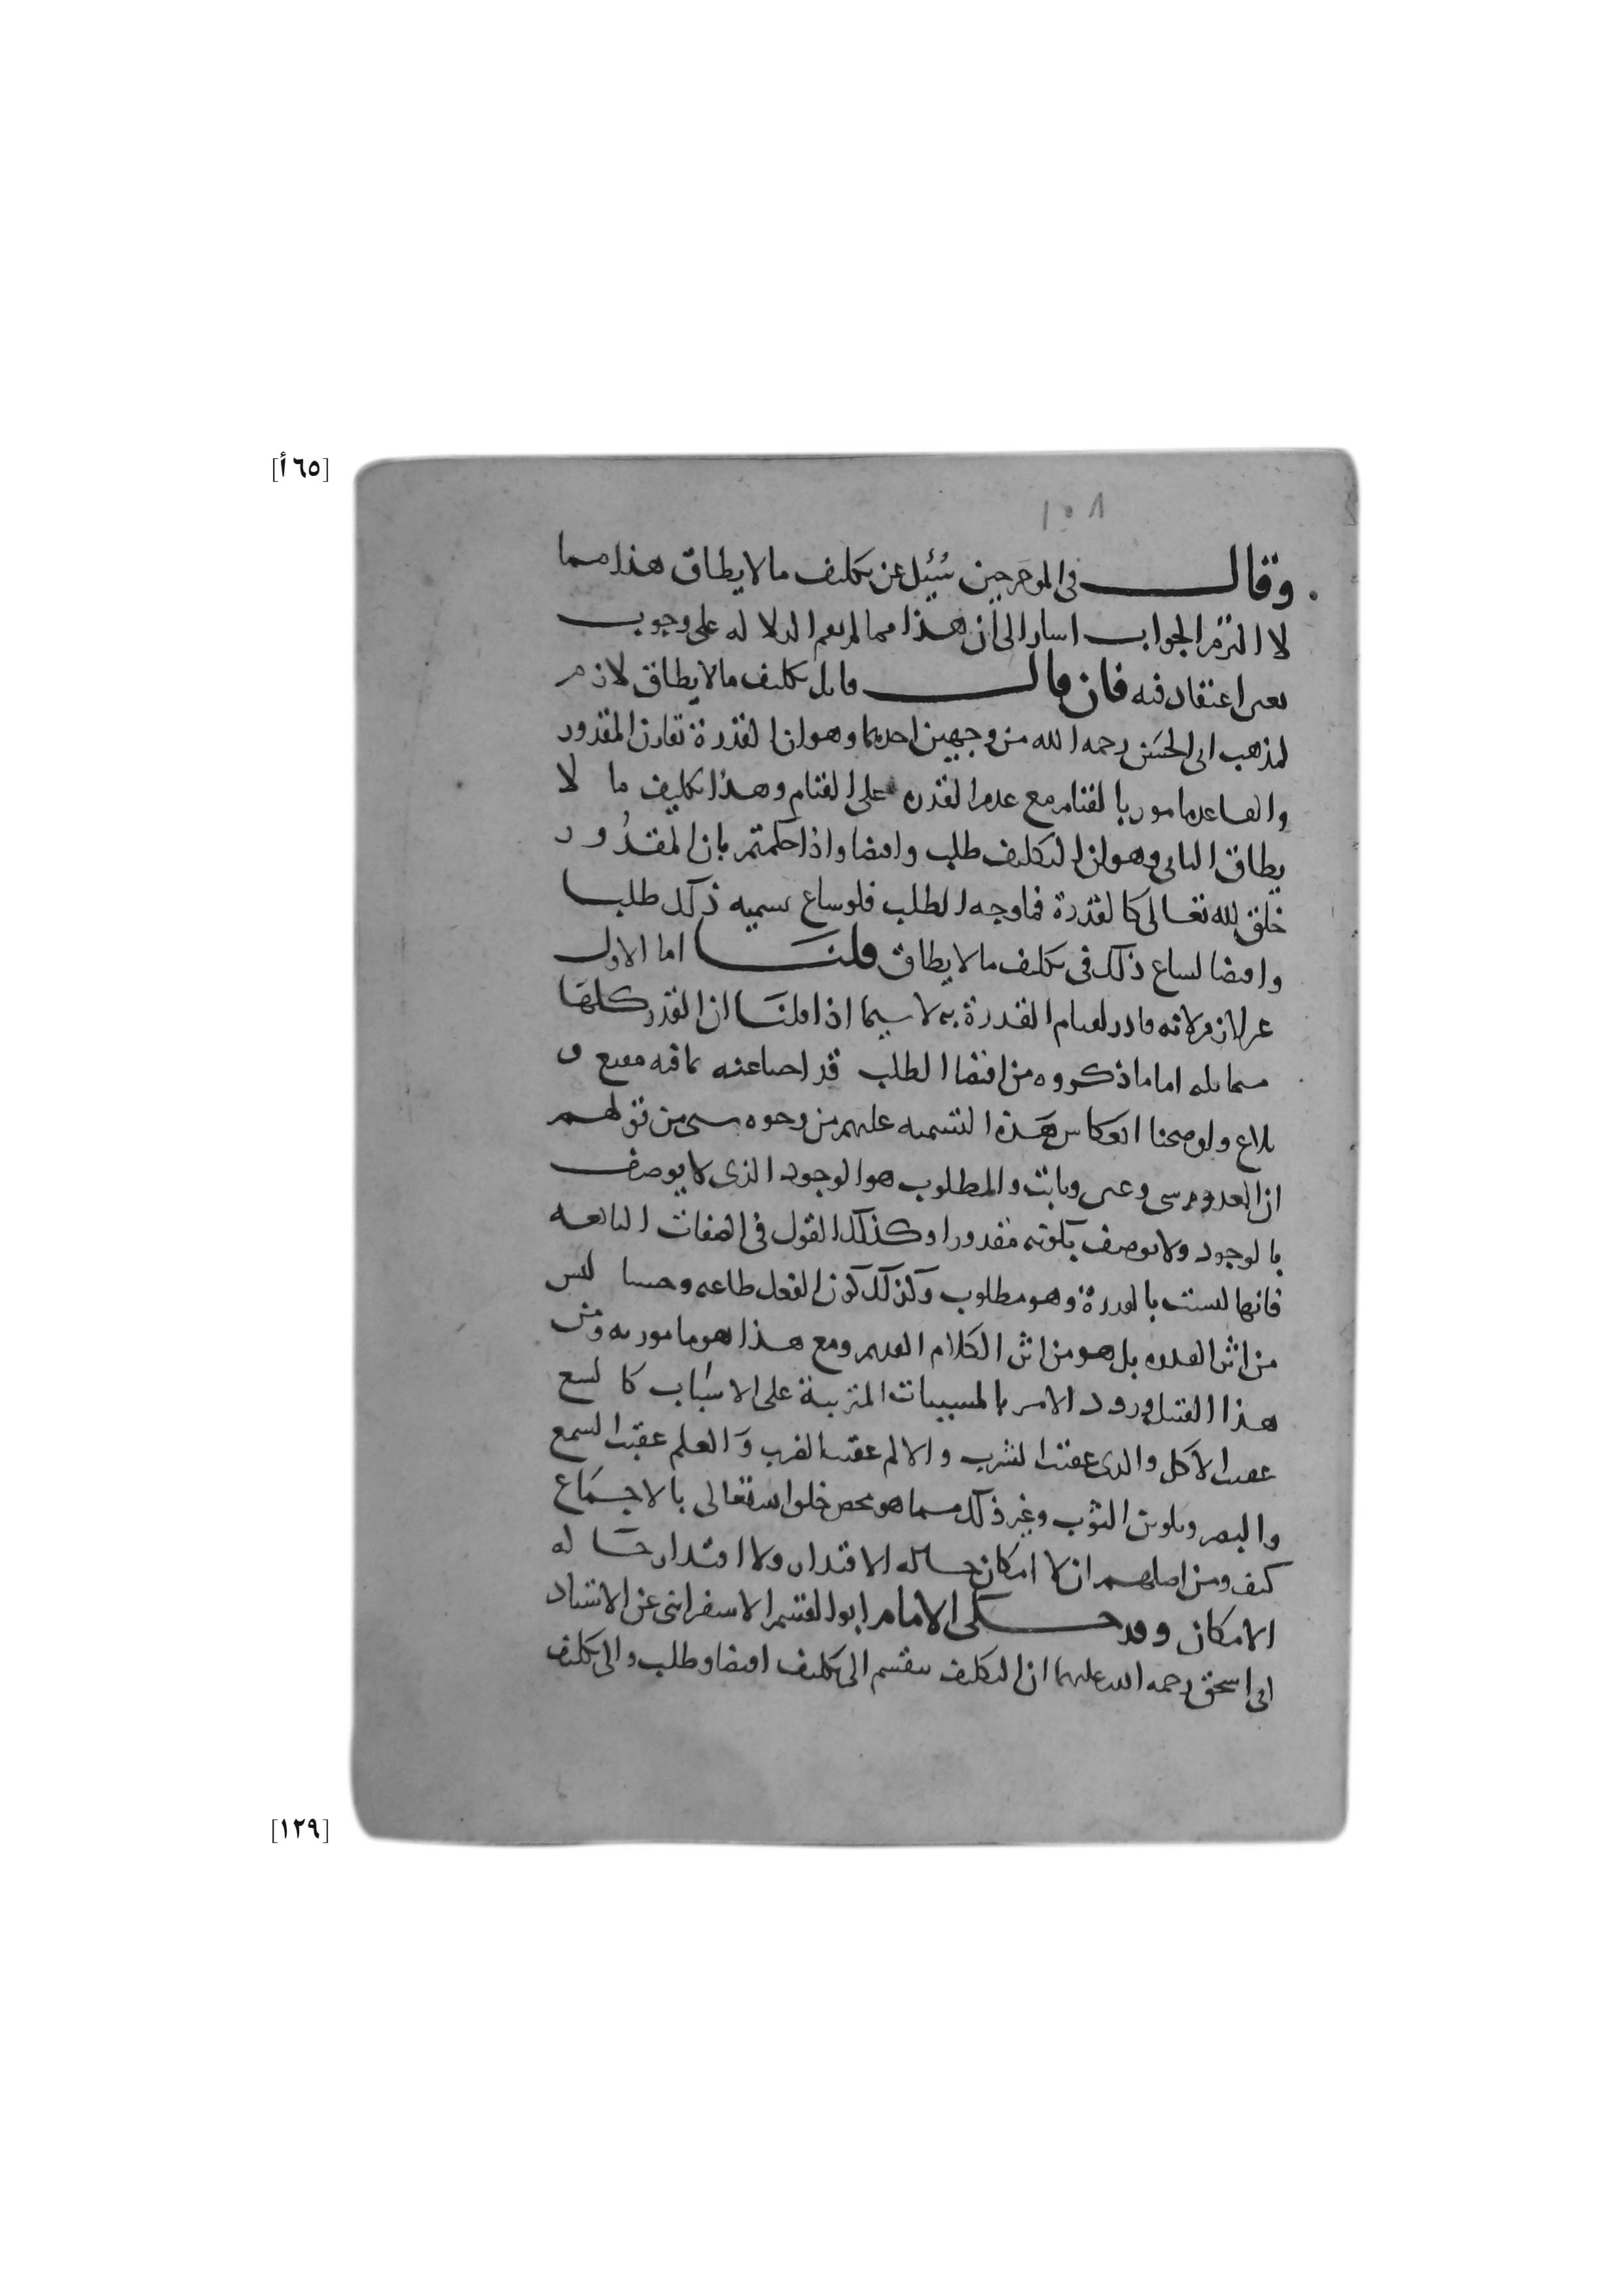 [٦٥أ]
١٠٨
وقال في الموجز حين سُئِل عن تكليف ما لا يطاق هذا مما
لا التزم الجواب اشار الى ان هذا مما لم يقم الدلاله على وجوب
اعتقاد فيه فان قال قايل تكليف ما لا يطاق لازم
لمذهب ابي الحسَن رحمه الله من وجهين احدهما وهو ان القدرة تقارن المقدور
والقاعد مامور بالقيام مع عدم القدره على القيام وهذا تكليف ما لا
يطاق الثاني وهو ان التكليف طلب واقتضا واذا حكمتم بان المقدُور
خلق لله تعالى كالقدرة فما وجه الطلب فلو ساغ تسميه ذلك طلبا
واقتضا لساغ ذلك في تكليف ما لا يطاق قلنَا اما الاول
غير لازم لانه قادر لقيام القدرة به لا سيما اذا قلنَا ان القدر كلهَا
متماثله اما ما ذكروه من اقتضا الطلب قد اجبنا عنه بما فيه مقنع و
بلاغ ولو صححنا انعكاس هَذه التسميه عليهم من وجوه شتى من قولهم
ان المعدوم شي وعين وثابت والمطلوب هو الوجود الذي لا يوصف
بالوجود ولا يوصف بكونه مقدورا وكذلك القول في الصفات التابعه
فانها ليست بالقدرة وهو مطلوب وكذلك كون الفعل طاعه وحسنا ليس
من اثر القدره بل هو من اثر الكلام القديم ومع هذا هو مامور به ومن
هذا القبيل ورود الامر بالمسببات المترتبة على الاسبَاب كالشبع
عقيب الاكل والري عقيب الشرب والالم عقيب الضرب وَالعلم عقيب السمع
والبصر وتلوين الثوب وغير ذلك مما هو محض خلق الله تعالى بالاجمَاع
كيف ومن اصلهم ان لا امكان حاله الاقتدار ولا اقتدار حَاله
الامكان وقد حكى الامام ابو القسم الاسفرايني عن الاستاد
ابي اسحق رحمه الله عليهما ان التكليف ينقسم الى تكليف اقتضا وطلب والى تكليف
[١٢٩]